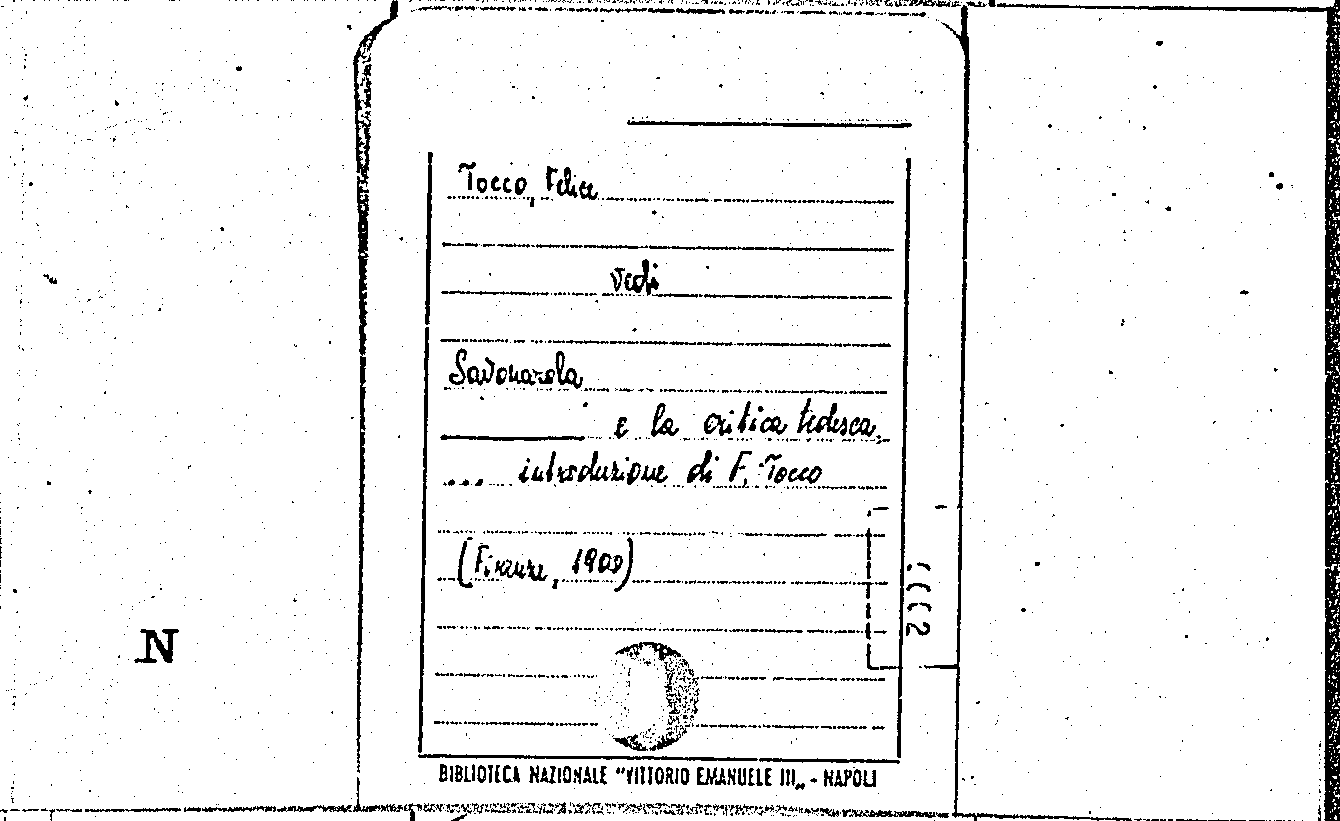 Tocco, Felice
vedi
Savonarola
e la critica tedesca.
... introduzione di F. Tocco
(Firenze, 1900)
N
BIBLIOTECA NAZIONALE "VITTORIO EMANUELE III„ - NAPOLI